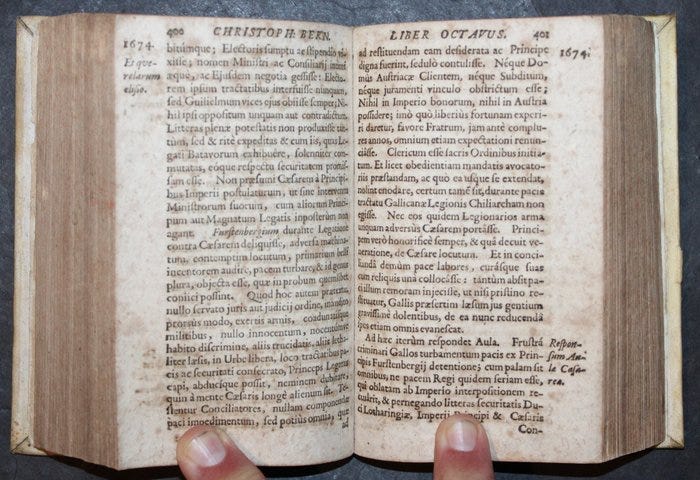 400 CHRISTOPH: BERN.
1674.
Et que-
relarum
elisio.
bitumque; Electoris sumptu ac stipendio vi-
xisse; nomen Ministri ac Consiliarij
æque, ac Ejusdem negotia gessisse: Electo-
rem ipsum tractatibus interfuisse nunquam,
sed Guilielmum vices ejus obiisse semper; Ni-
hil ipsi oppositum unquam aut contradictum.
Litteras plenæ potestatis non produxisse tan-
tum, sed & ritè expeditas & cum iis, quas Le-
gati Batavorum exhibuêre, solenniter com-
mutatas, eóque respectu securitatem promis-
sam esse. Non præsumi Cæsarem à Principi-
bus Imperii postulaturum, ut sine interventu
Ministrorum suorum, cum aliorum Princi-
pum aut Magnatum Legatis inposterùm non
agant. Furstenbergium durante Legatione
contra Cæsarem deliquisse, adversa machina-
tum, contemptim locutum, primarium belli
incentorem audire, pacem turbare, & id genus
plura, objecta esse, quæ in probum quemlibet
conijci possint. Quod hoc autem prætextu,
nullo servato juris aut judicij ordine, mandato
prorsus modo, exertis armis, coadunatisque
militibus, nullo innocentum, nocentumve
habito discrimine, aliis trucidatis, aliis letha-
liter læsis, in Urbe libera, loco tractatibus pa-
cis ac securitati consecrato, Princeps Legatus
capi, abducique possit, neminem dubitare,
quin à mente Cæsaris longè alienum sit. Te-
stentur Conciliatores, nullam componendæ
paci impedimentum, sed potiùs omnia, quæ
ad
LIBER OCTAVUS. 401
1674.
ad restituendam eam desiderata ac Principe
digna fuerint, sedulò contulisse. Néque Do-
mûs Austriacæ Clientem, néque Subditum,
néque juramenti vinculo obstrictum esse;
Nihil in Imperio bonorum, nihil in Austria
possidere; imò quò liberius fortunam experi-
ri daretur, favore Fratrum, jam antè complu-
res annos, omnium etiam expectationi renun-
ciâsse. Clericum esse sacris Ordinibus initia-
tum. Et licet obedientiam mandatis avocato-
riis præstandam, ac quo ea usque se extendat,
nolint enodare, certum tamē sit, durante pacis
tractatu Gallicanæ Legionis Chiliarcham non
egisse. Nec eos quidem Legionarios arma
unquam adversùs Cæsarem portâsse. Princi-
pem verò honorificè semper, & quâ decuit ve-
neratione, de Cæsare locutum. Et in conci-
liandâ demùm pace labores, curásque suas
cum reliquis una collocâsse: tantùm abest pa-
ci illum remoram injecisse, ut nisi pristino re-
stituatur, Gallis præsertim læsum jus gentium
gravissimè dolentibus, de ea nunc reducendâ
spes etiam omnis evanescat.
Ad hæc iterùm respondet Aula. Frustrá
criminari Gallos turbamentum pacis ex Prin-
cipis Furstenbergij detentione; cum palam sit
omnibus, ne pacem Regi quidem seriam esse,
qui oblatam ab Imperio interpositionem re-
cusârit, & pernegando litteras securitatis Du-
ci Lotharingiæ, Imperij Principi & Cæsaris
Con-
Respon-
sum Au-
læ Cæsa-
rea.